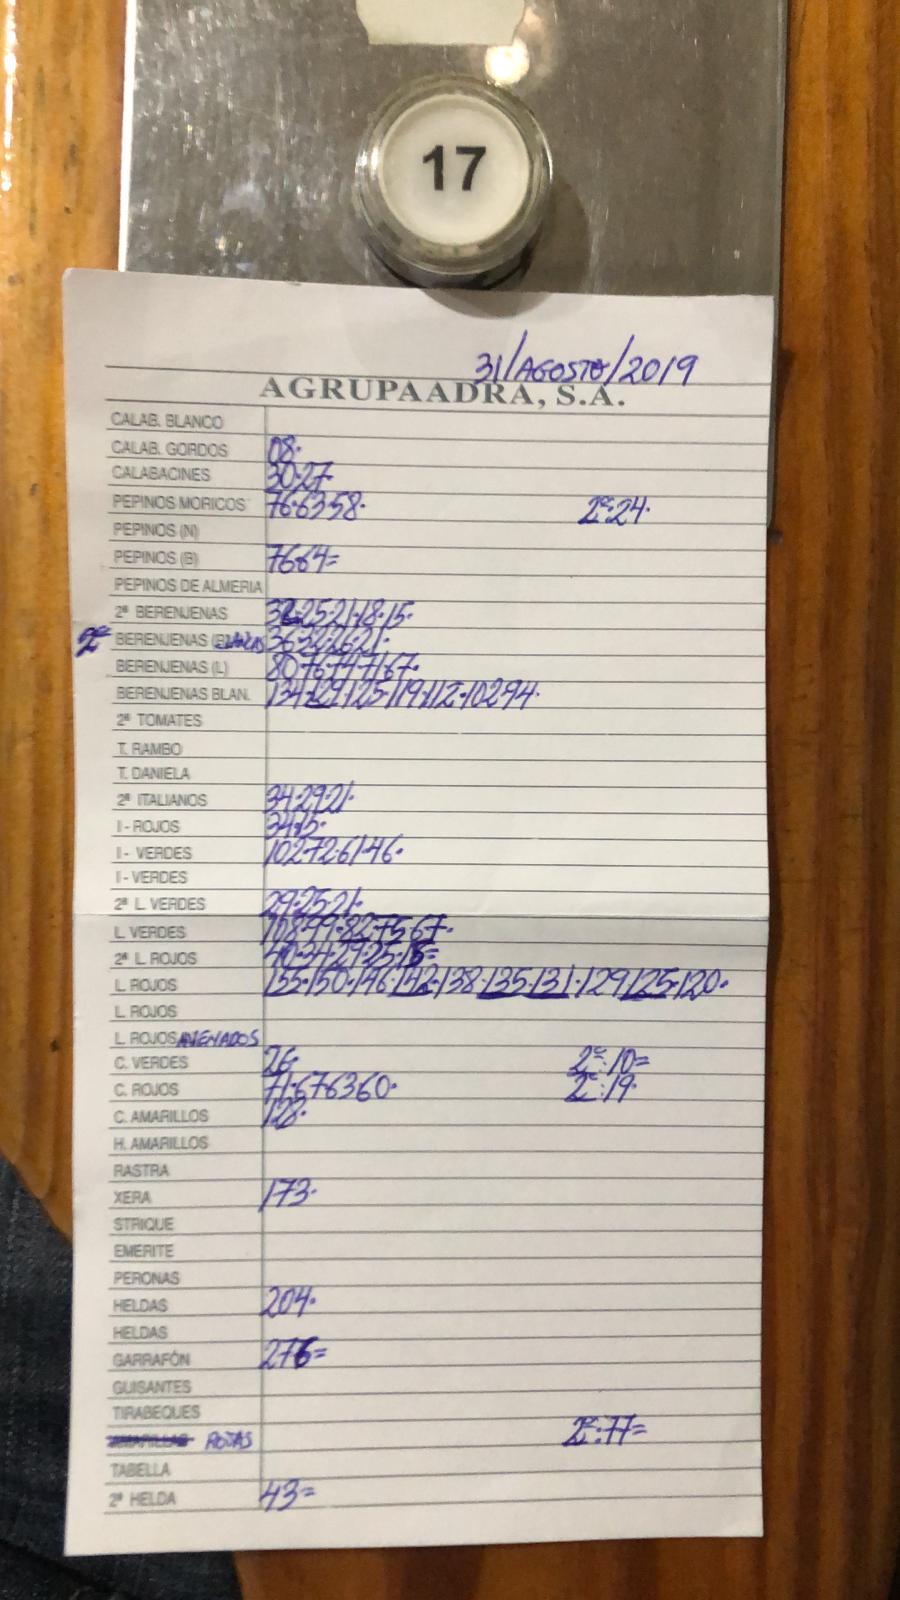 17
31/AGOSTO/2019
AGRUPAADRA, S.A.
CALAB. BLANCO
CALAB. GORDOS 08.
CALABACINES 30.27.
PEPINOS MORICOS 76.63.58. 2ª:24.
PEPINOS (N)
PEPINOS (B) 76.64=
PEPINOS DE ALMERIA
2ª BERENJENAS 32.25.21.18.15.
2ª BERENJENAS 36.32.26.21.
BERENJENAS (L) 80.76.74.71.67.
BERENJENAS BLAN. 134.129.125.119.112.102.94.
2ª TOMATES
T. RAMBO
T. DANIELA
2ª ITALIANOS 34.29.21.
I - ROJOS 34.15.
I - VERDES 102.72.61.46.
I - VERDES
2ª L. VERDES 29.25.21.
L. VERDES 108.99.82.75.67.
2ª L. ROJOS 40.34.29.25.
L. ROJOS 155.150.146.142.138.135.131.129.125.120.
L. ROJOS
L. ROJOS
C. VERDES 26. 2ª:10=
C. ROJOS 71.67.63.60. 2ª:19.
C. AMARILLOS 128.
H. AMARILLOS
RASTRA
XERA 173.
STRIQUE
EMERITE
PERONAS
HELDAS 204.
HELDAS
GARRAFÓN 276=
GUISANTES
TIRABEQUES
ROJAS 2ª:77=
TABELLA
2ª HELDA 43=